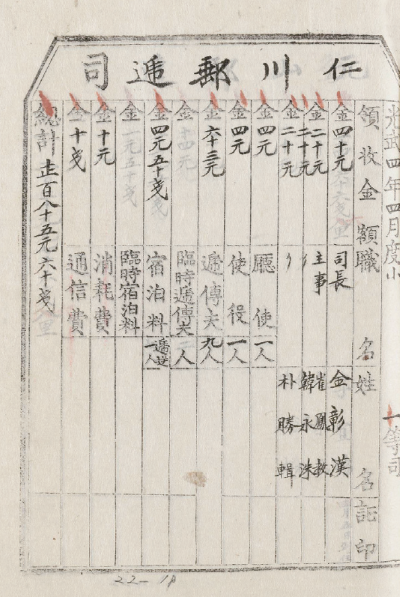 仁川郵遞司
光武四年四月度小
一等司
領收金額 職名 姓名 証印
金四十元 司長 金彰漢
金二十元 主事 崔鳳教
金二十元 〃 韓永洙
金二十元 〃 朴勝輯
金四元 廳使 一人
金四元 使役 一人
金六十三元 遞傳夫 九人
臨時遞傳夫 二人
金四元五十戔 宿泊料 一人
臨時宿泊料
金十元 消耗費
金十戔 通信費
總計 止百八十五元六十戔
22-18